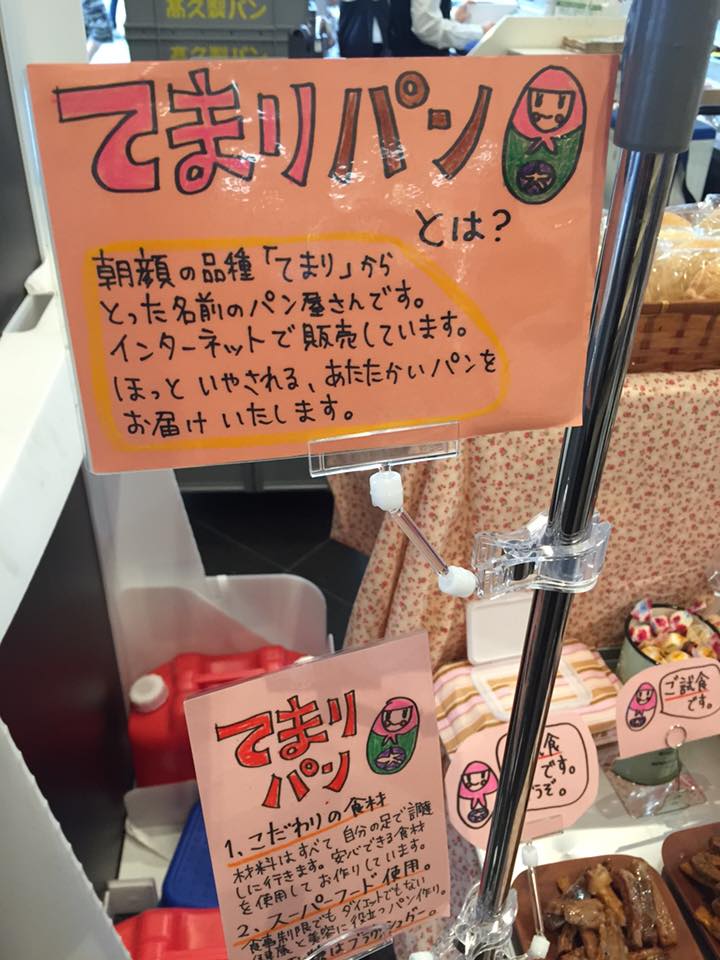 髙久製パン
髙久製パン
てまりパン
とは?
朝顔の品種「てまり」から
とった名前のパン屋さんです。
インターネットで販売しています。
ほっといやされる、あたたかいパンを
お届けいたします。
てまり
パン
1、こだわりの食材
材料はすべて、自分の足で調達
しに行きます。安心できる食材
を使用してお作りしています。
2、スーパーフード使用。
食事制限でもダイエットでもない
健康と美容に役立つパン作り。
はブラウンシュガー。
ご試食
です。
食
です。
うぞ。